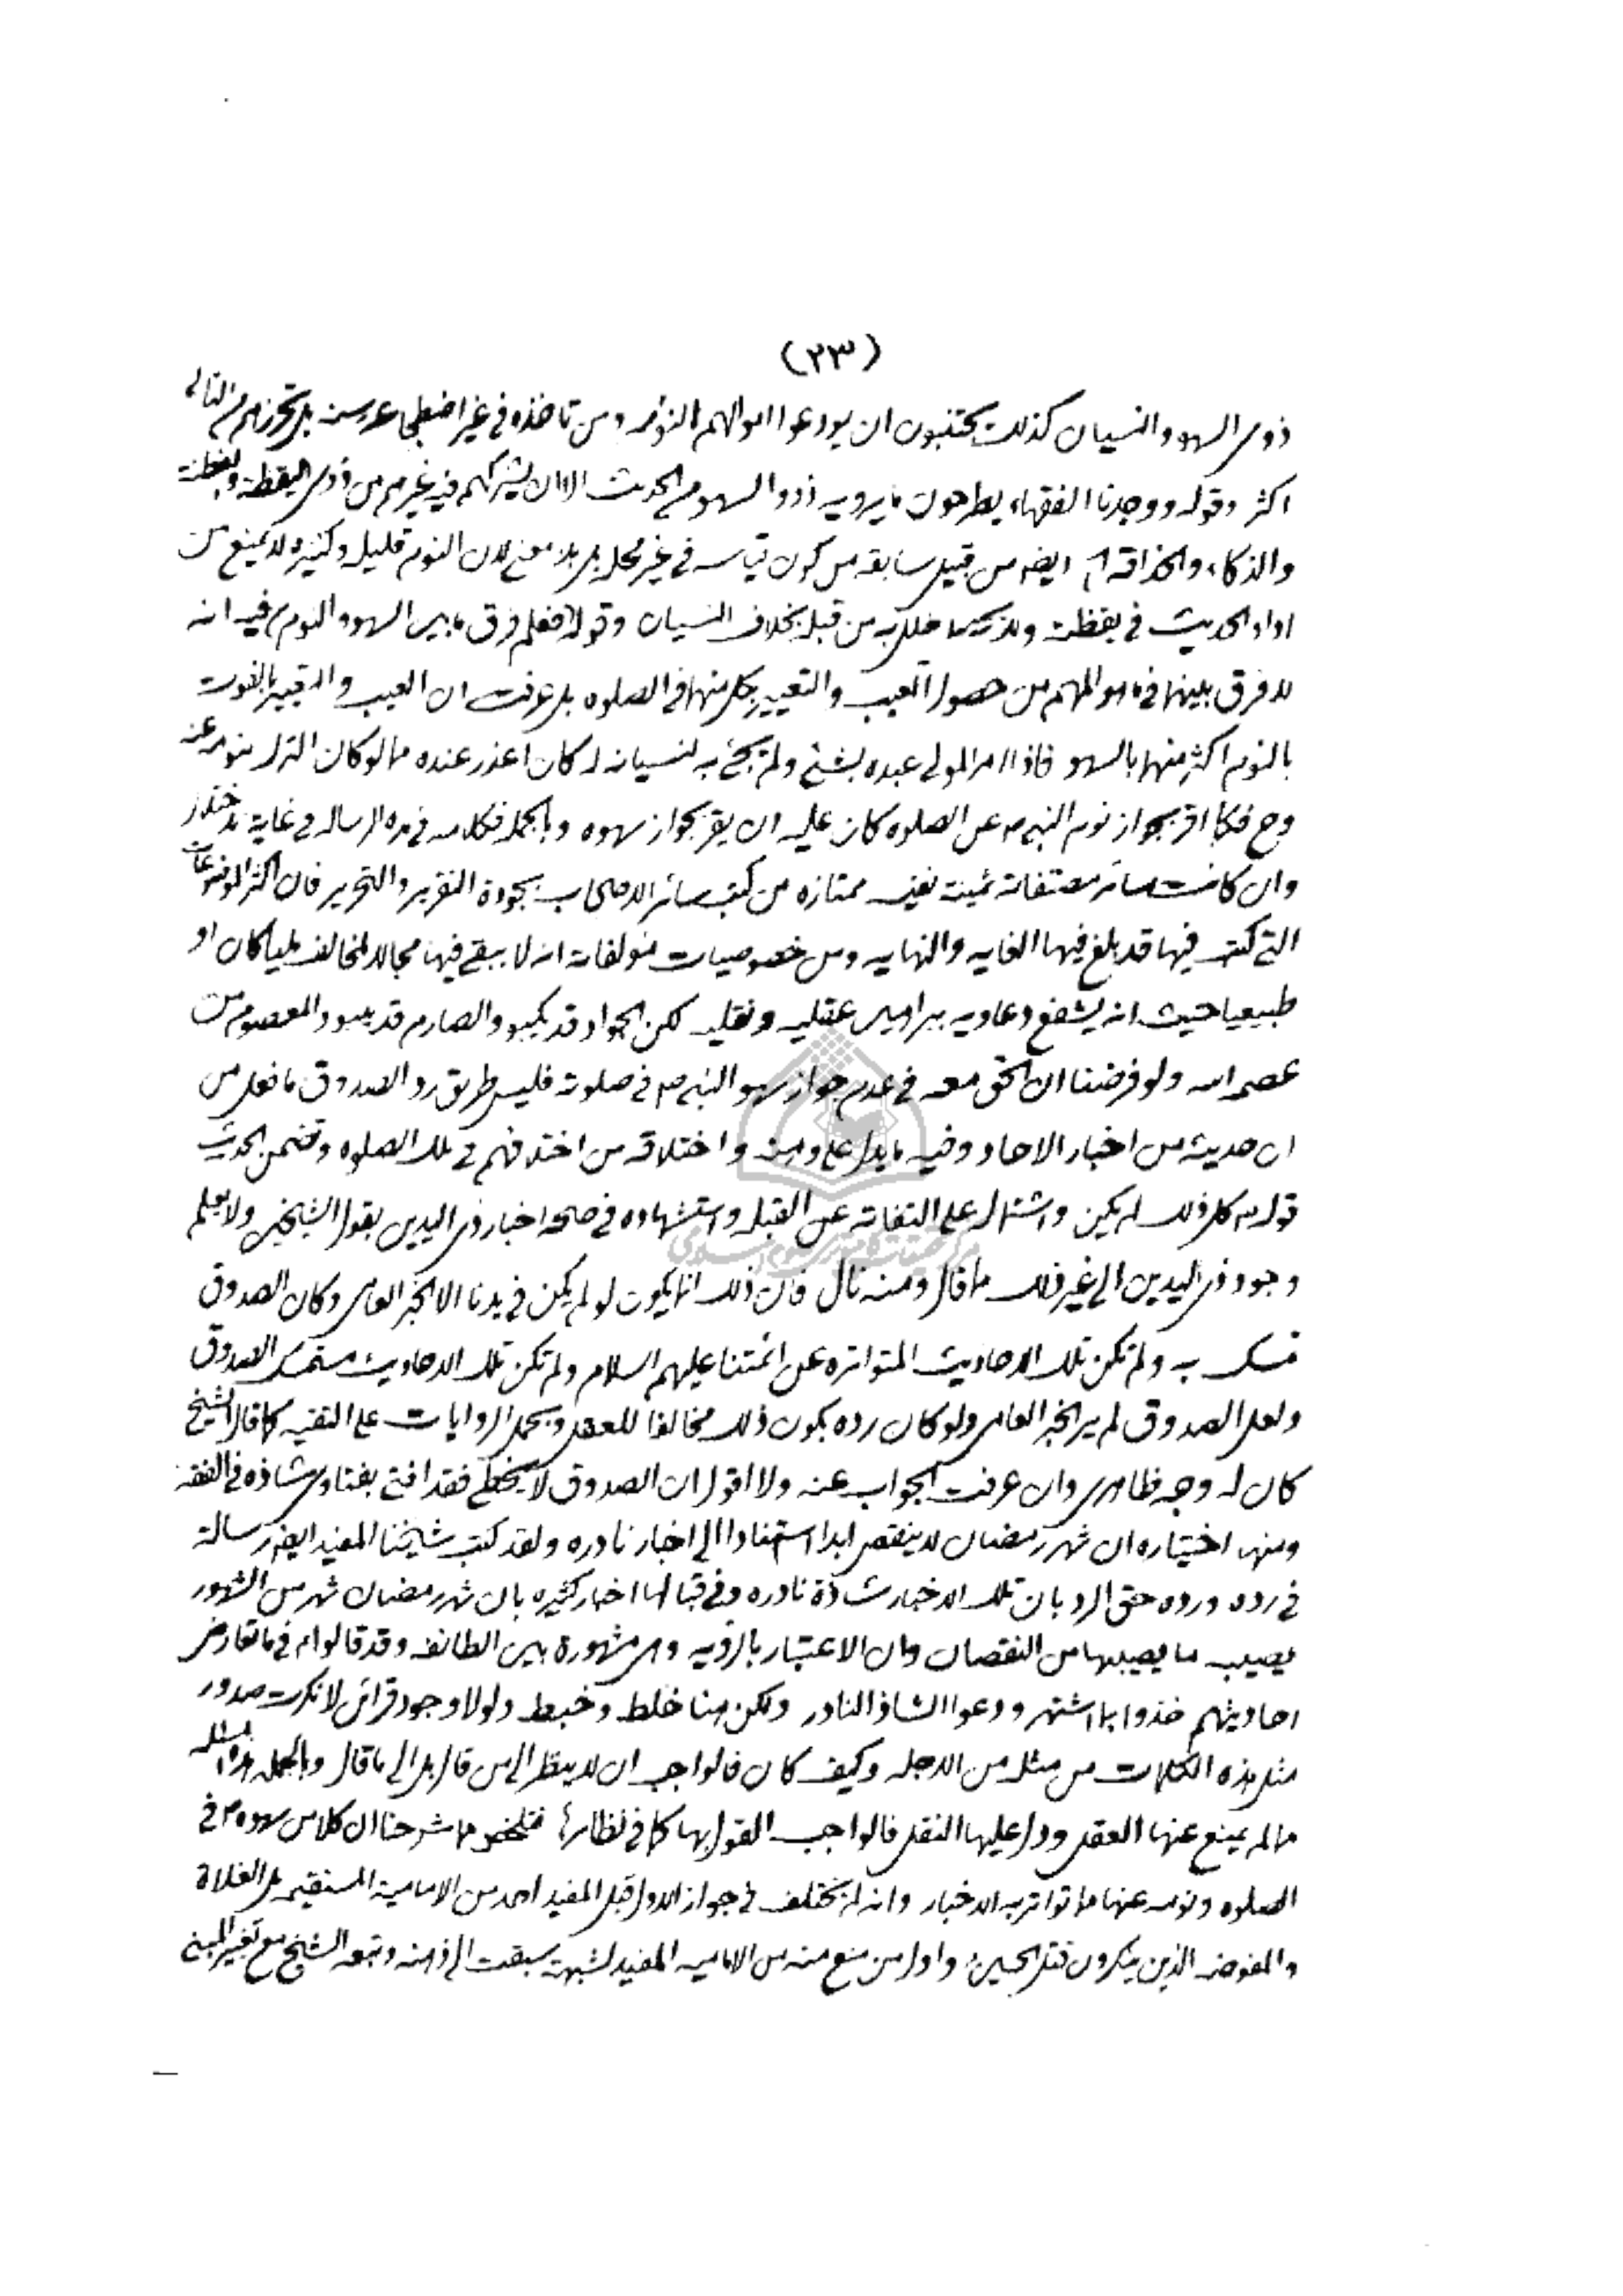 (٢٣)
ذوى السهو والنسيان كذلك يجتنبون ان يودعوا اموالهم النؤمه ومن تاخذه في غير اضطجاع سنه بل تحرزهم من الثانى
اكثر وقوله ووجدنا الفقهاء يطرحون ما يرويه ذووا السهو من الحديث الا ان يشركهم فيه غيرهم من ذوى اليقظة والفطنة
والذكاء والحذاقة ايضا من قبيل سابقه من كون قياسه في غير محله بل بلا معنى لان النوم قليله وكثيره لا يمنع من
اداء الحديث في يقظته ولا يحصل خلل به من قبله بخلاف النسيان وقوله فعلم فرق ما بين السهو والنوم فيه انه
لا فرق بينهما في ما هو المهم من حصول العيب والتعيير بكل منهما في الصلوه بل عرفت ان العيب والتعيير بالفوت
بالنوم اكثر منهما بالسهو فاذا امر المولى عبده بشئ ولم يجئ به لنسيانه له كان اعذر عنده مما لو كان الترك بنومه عنه
وح فكما اقر بجواز نوم النبي ص عن الصلوه كان عليه ان يقر بجواز سهوه وبالجملة فكلامه في هذه الرساله في غاية الاختلال
وان كانت سائر مصنفاته ثمينة نفيسه ممتازه من كتب سائر الاصحاب بجودة التقرير والتحرير فان اكثر الموضوعات
التى كتب فيها قد بلغ فيها الغايه والنهايه ومن خصوصيات مؤلفاته انه لا يبقى فيها مجالا لمخالف مليا كان او
طبيعيا حيث انه يشفع دعاويه ببراهين عقليه ونقليه لكن الجواد قد يكبو والصارم قد ينبو والمعصوم من
عصمه الله ولو فرضنا ان الحق معه في عدم جواز سهو النبي ص في صلوته فليس طريق رد الصدوق ما فعل من
ان حديثه من اخبار الاحاد وفيه ما يدل على وهنه واختلاقه من اختلافهم في تلك الصلوه وتضمن الحديث
قوله ص كل ذلك لم يكن واشتماله على التفاته عن القبله واستشهاده في صحة اخبار ذى اليدين بقول الشيخين ولا يعلم
وجود ذى اليدين الى غير ذلك مما قال ومنه نال فان ذلك انما يكون لو لم يكن في يدنا الا الخبر العامى وكان الصدوق
تمسك به ولم تكن تلك الاحاديث المتواتره عن ائمتنا عليهم السلام ولم تكن تلك الاحاديث مستمسك الصدوق
ولعل الصدوق لم ير الخبر العامى ولو كان رده بكون ذلك مخالفا للعقل ويحمل الروايات على التقيه كما قال الشيخ
كان له وجه ظاهرى وان عرفت الجواب عنه ولا اقول ان الصدوق لا يخطئ فقد افتى بفتاوى شاذه في الفقه
ومنها اختياره ان شهر رمضان لا ينقص ابدا استنادا الى اخبار نادره ولقد كتب شيخنا المفيد ايضا رسالة
في رده ورده حق الرد بان تلك الاخبار شاذة نادره وفي قبالها اخبار كثيره بان شهر رمضان شهر من الشهور
يصيبه ما يصيبها من النقصان وان الاعتبار بالرؤيه وهى مشهورة بين الطائفه وقد قالوا ع في ما تعارض
احاديثهم خذوا بما اشتهر ودعوا الشاذ النادر ولكن هنا خلط وخبط ولولا وجود قرائن لانكرت صدور
مثل هذه الكلمات من مثله من الاجله وكيف كان فالواجب ان لا ينظر الى من قال بل الى ما قال وبالجمله هذه المسئله
مما لم يمنع عنها العقل ودل عليها النقل فالواجب القول بها كما في نظائرها فتلخص مما شرحنا ان كلا من سهوه ص في
الصلوه ونومه عنها مما تواتر به الاخبار وانه لم يختلف في جواز الاول قبل المفيد احد من الامامية المستقيمه بل الغلاة
والمفوضه الذين ينكرون قتل الحسين ع واول من منع منه من الاماميه المفيد لشبهة سبقت الى ذهنه وتبعه الشيخ مع تغيير المبنى